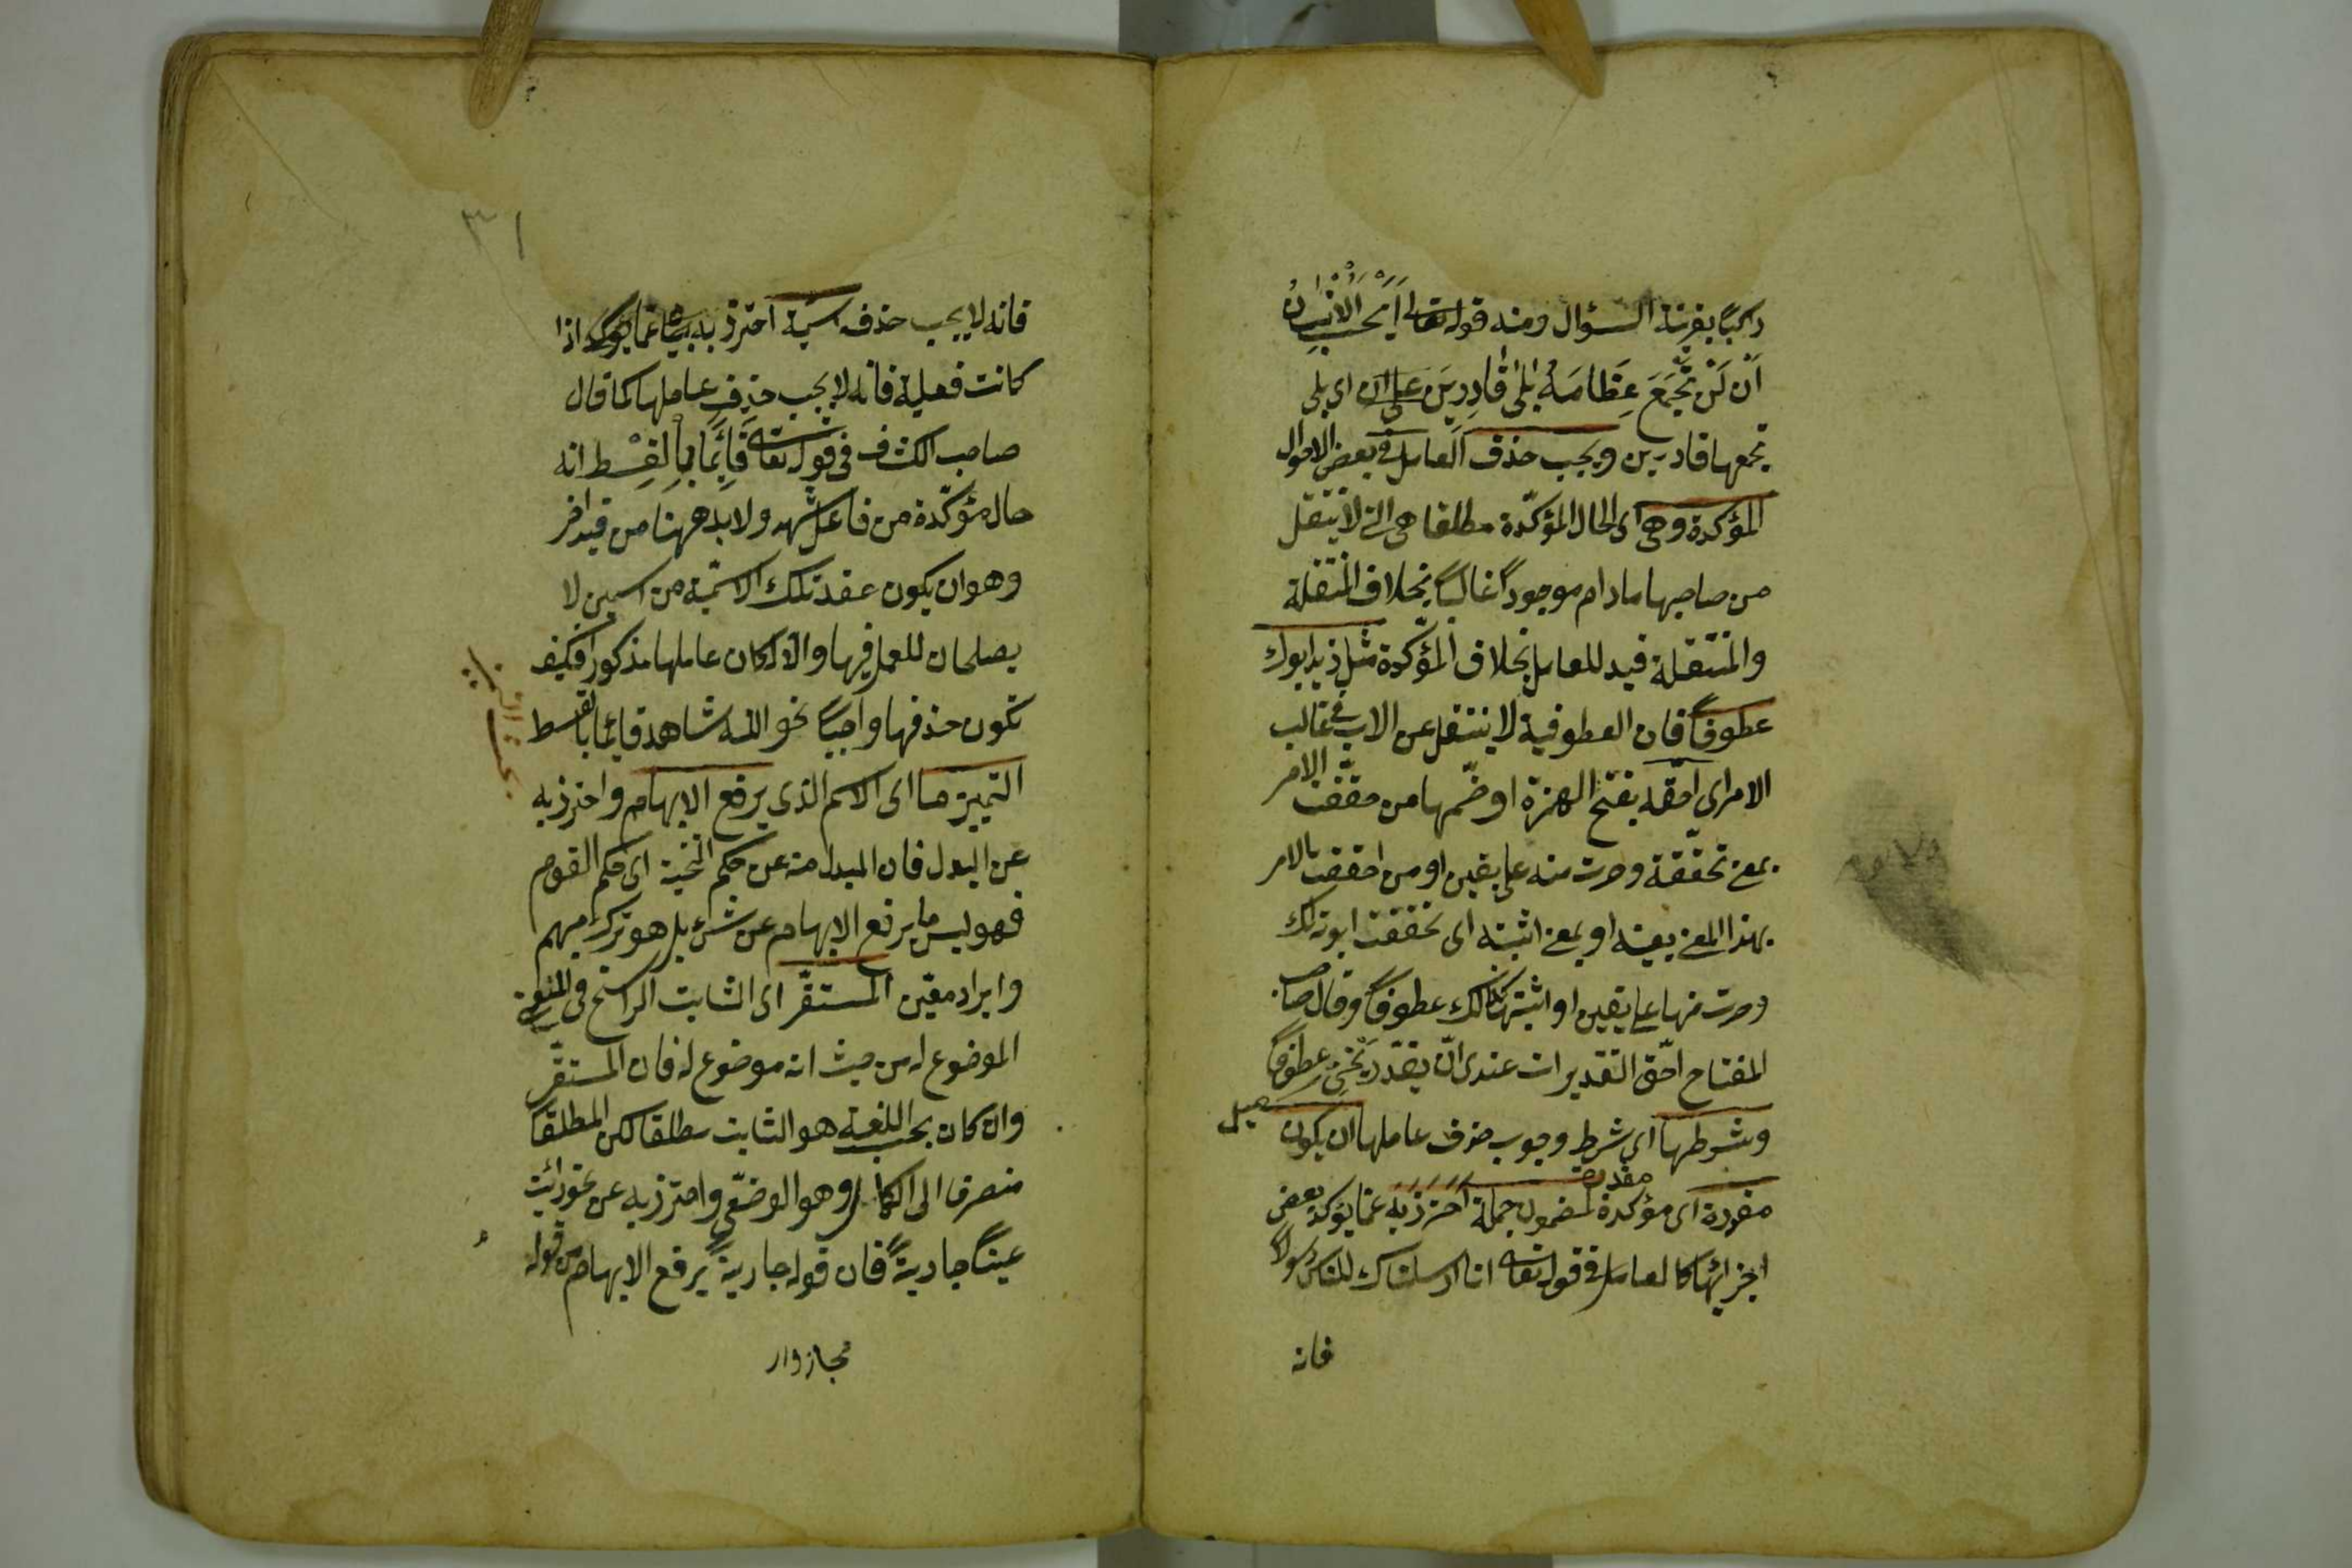 راكبًا بقرينة السؤال ومنه قوله تعالى اَيَحْسَبُ الْاِنْسَانُ
اَنْ لَنْ نَجْمَعَ عِظَامَهُ بَلٰى قَادِرِينَ على ان اى بلى
نجمعها قادرين ويجب حذف العامل فى بعض الاحوال
المؤكدة وهى اى الحال المؤكّدة مطلقا هى التى لا تنتقل
من صاحبها مادام موجوداً غالباً بخلاف المنتقلة
والمنتقلة قيد للعامل بخلاف المؤكّدة مثل زيد ابوك
عطوفاً فان العطوفية لا ينتقل عن الاب فى غالب
الامر اى احقّه بفتح الهمزة او ضمّها من حققت الامر
بمعنى تحقّقته وصرت منه على يقين او من احققت الامر
بهذا المعنى بعينه او بمعنى اثبته اى تحققت ابوته لك
وصرت منها على يقين او اثبتها لك عطوفاً وقال صاحب
المفتاح احّق التقديرات عندى انّ يقدّر يحنى عطوفاً
وشرطها اى شرط وجوب حذف عاملها ان يكون
مقررة اى مؤكدة لمضمون جملة احترز به عمّا يؤكد بعض
اجزائها كالعامل فى قوله تعالى انا ارسلناك للناس رسولاً
فانه
٣١
فانه لا يجب حذفه اسمية احترز به عما اذا
كانت فعلية فانه لا يجب حذف عاملها كما قال
صاحب الكشاف فى قوله تعالى قَائِمًا بِالْقِسْطِ انه
حال مؤكّدة من فاعل شهد ولا بد ههنا من قيد اخر
وهو ان يكون عقد تلك الاسميّة من اسمين لا
يصلحان للعمل فيها والا لكان عاملها مذكورا فكيف
تكون حذفها واجباً نحو الله شاهد قائما بالقسط
التمييز ما اى الاسم الذى يرفع الابهام واحترز به
عن البدل فان المبدل منه عن حكم التنحية اى حكم القوم
فهو ليس ما يرفع الابهام عن شئ بل هو ترك مبهم
وايراد معيّن المستقّر اى الثابت الراسخ فى المعنى
الموضوع له من حيث انه موضوع له فان المستقّر
وان كان بحسب اللغة هو الثابت مطلقا لكن المطلقا
منصرف الى الكامل وهو الوضعى واحترز به عن نحو رايت
عيناً جاريةً فان قوله جاريةً يرفع الابهام من قوله